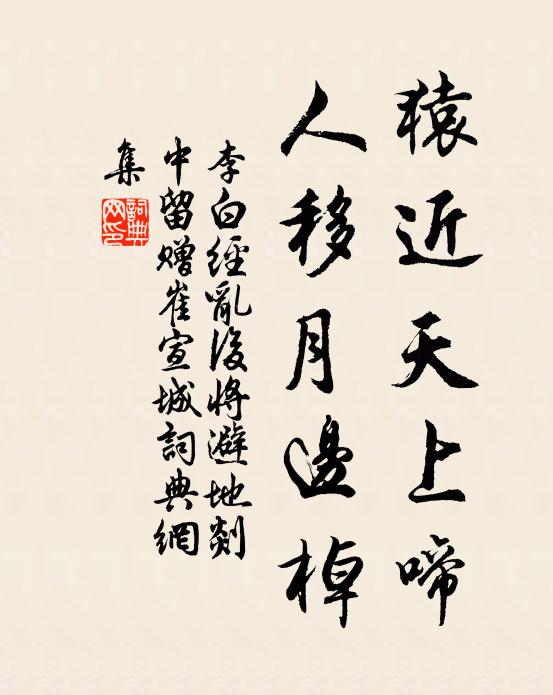 猿近天上啼
人移月邊棹
李白經亂後將避地剡
中留贈崔宣城詞典網
集
詞典
网印